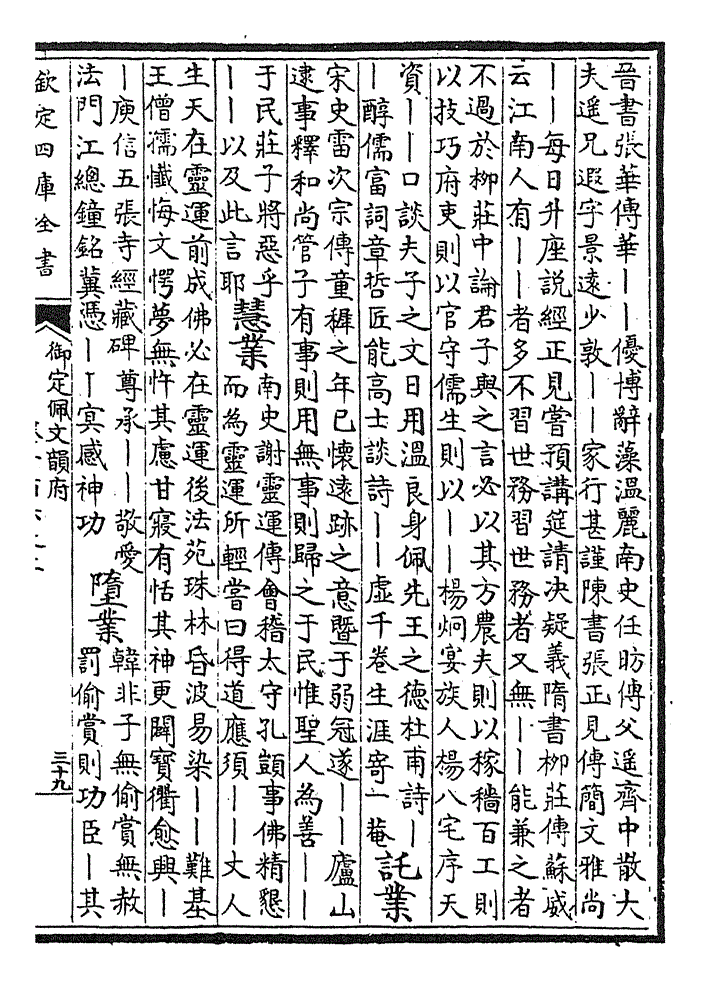 晉書張華傳華——優博辭藻温麗南史任昉傳父遥齊中散大
夫遥兄遐字景遠少敦——家行甚謹陳書張正見傳簡文雅尚
——每日升座説經正見嘗預講筵請决疑義隋書柳莊傳蘇威
云江南人有——者多不習世務習世務者又無——能兼之者
不過於柳莊中論君子與之言必以其方農夫則以稼穡百工則
以技巧府吏則以官守儒生則以——楊炯宴族人楊八宅序天
資——口談夫子之文日用溫良身佩先王之德杜甫詩—
—醇儒富詞章哲匠能高士談詩——虚千卷生涯寄一菴
託業
宋史雷次宗傳童穉之年已懷遠跡之意暨于弱冠遂——廬山
逮事釋和尚管子有事則用無事則歸之于民惟聖人為善——
于民莊子將惡乎
——以及此言耶
慧業
南史謝靈運傳會稽太守孔顗事佛精懇
而為靈運所輕嘗曰得道應須——文人
生天在靈運前成佛必在靈運後法苑珠林昏波易染——難基
王僧孺懺悔文愕夢無忤其慮甘寢有恬其神更闢寶衢愈興—
—庾信五張寺經藏碑尊承——敬愛
法門江總鐘銘冀憑——冥感神功
墮業
韓非子無偷賞無赦
罰偷賞則功臣—其
欽定四庫全書
御定佩文韻府
三十九